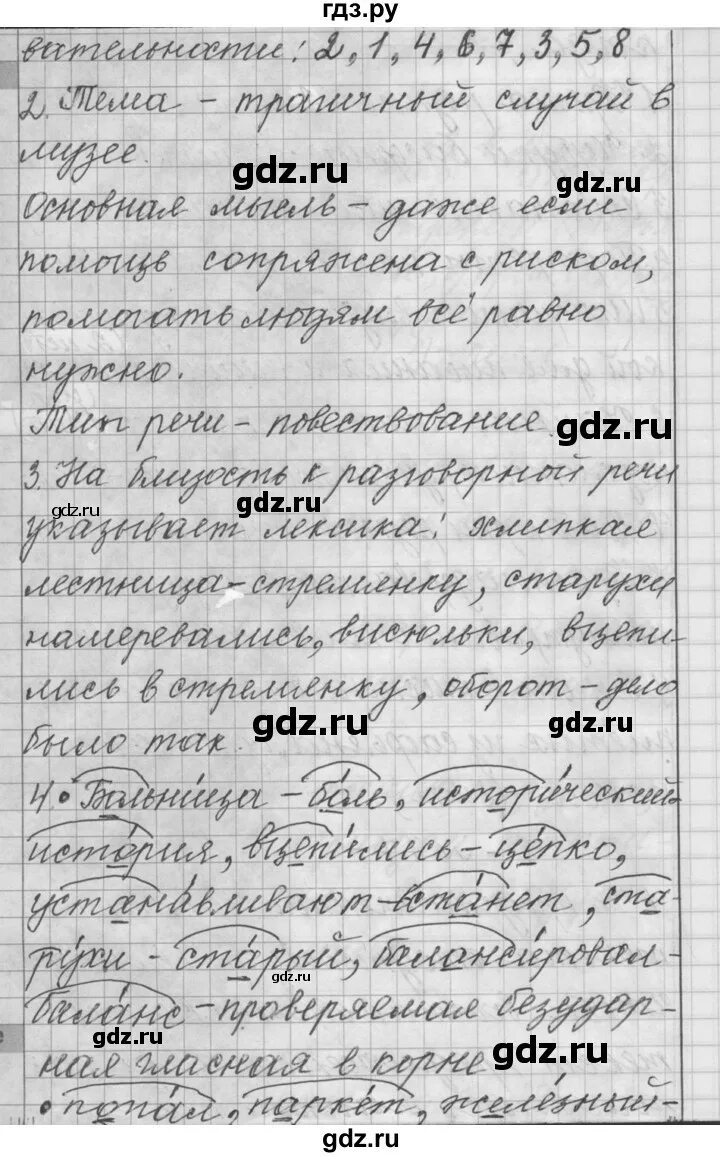 гдз.ру
вательности: 2, 1, 4, 6, 7, 3, 5, 8
2. Тема – трагичный случай в
музее.
gdz.ru
gdz.ru
Основная мысль – даже если
помощь сопряжена с риском,
помогать людям всё равно
нужно.
Тип речи – повествование.
gdz.ru
3. На близость к разговорной речи
gdz.ru
gdz.ru
указывает лексика: хлипкая
лестница-стремянку, старухи
намеревались, висюльки, вцепи-
лись в стремянку, оборот – дело
было так.
gdz.ru
gdz.ru
4. • Больница – боль, исторический-
история, вцепились – цепко,
устанавливают – встанет, ста-
рухи – старый, балансировал-
gdz.ru
баланс – проверяемая безудар-
gdz.ru
ная гласная в корне
gdz.ru
• попал, паркет, железный-
gdz.ru
gdz.ru